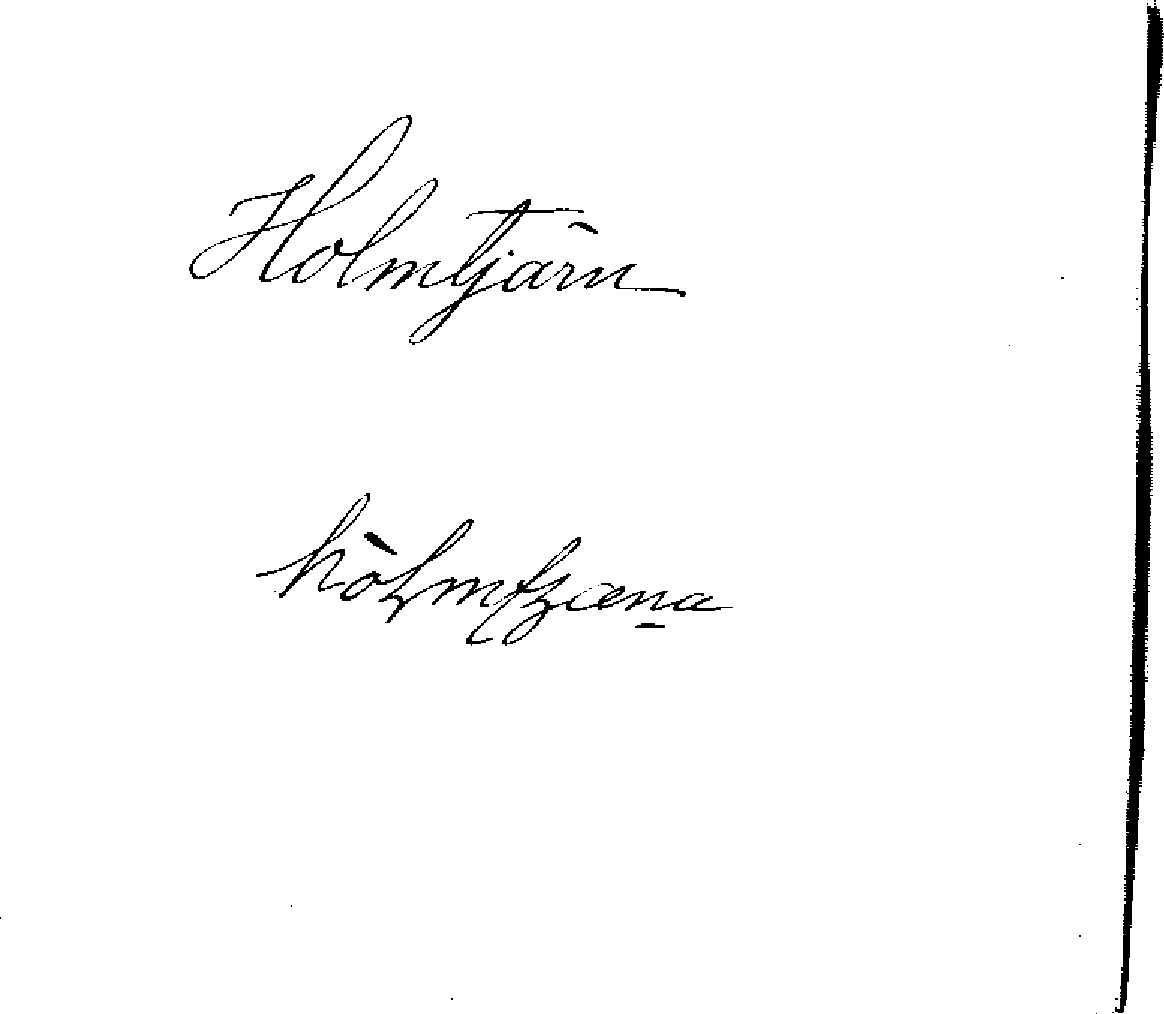 Holmtjärn
hòłmtjæṉa